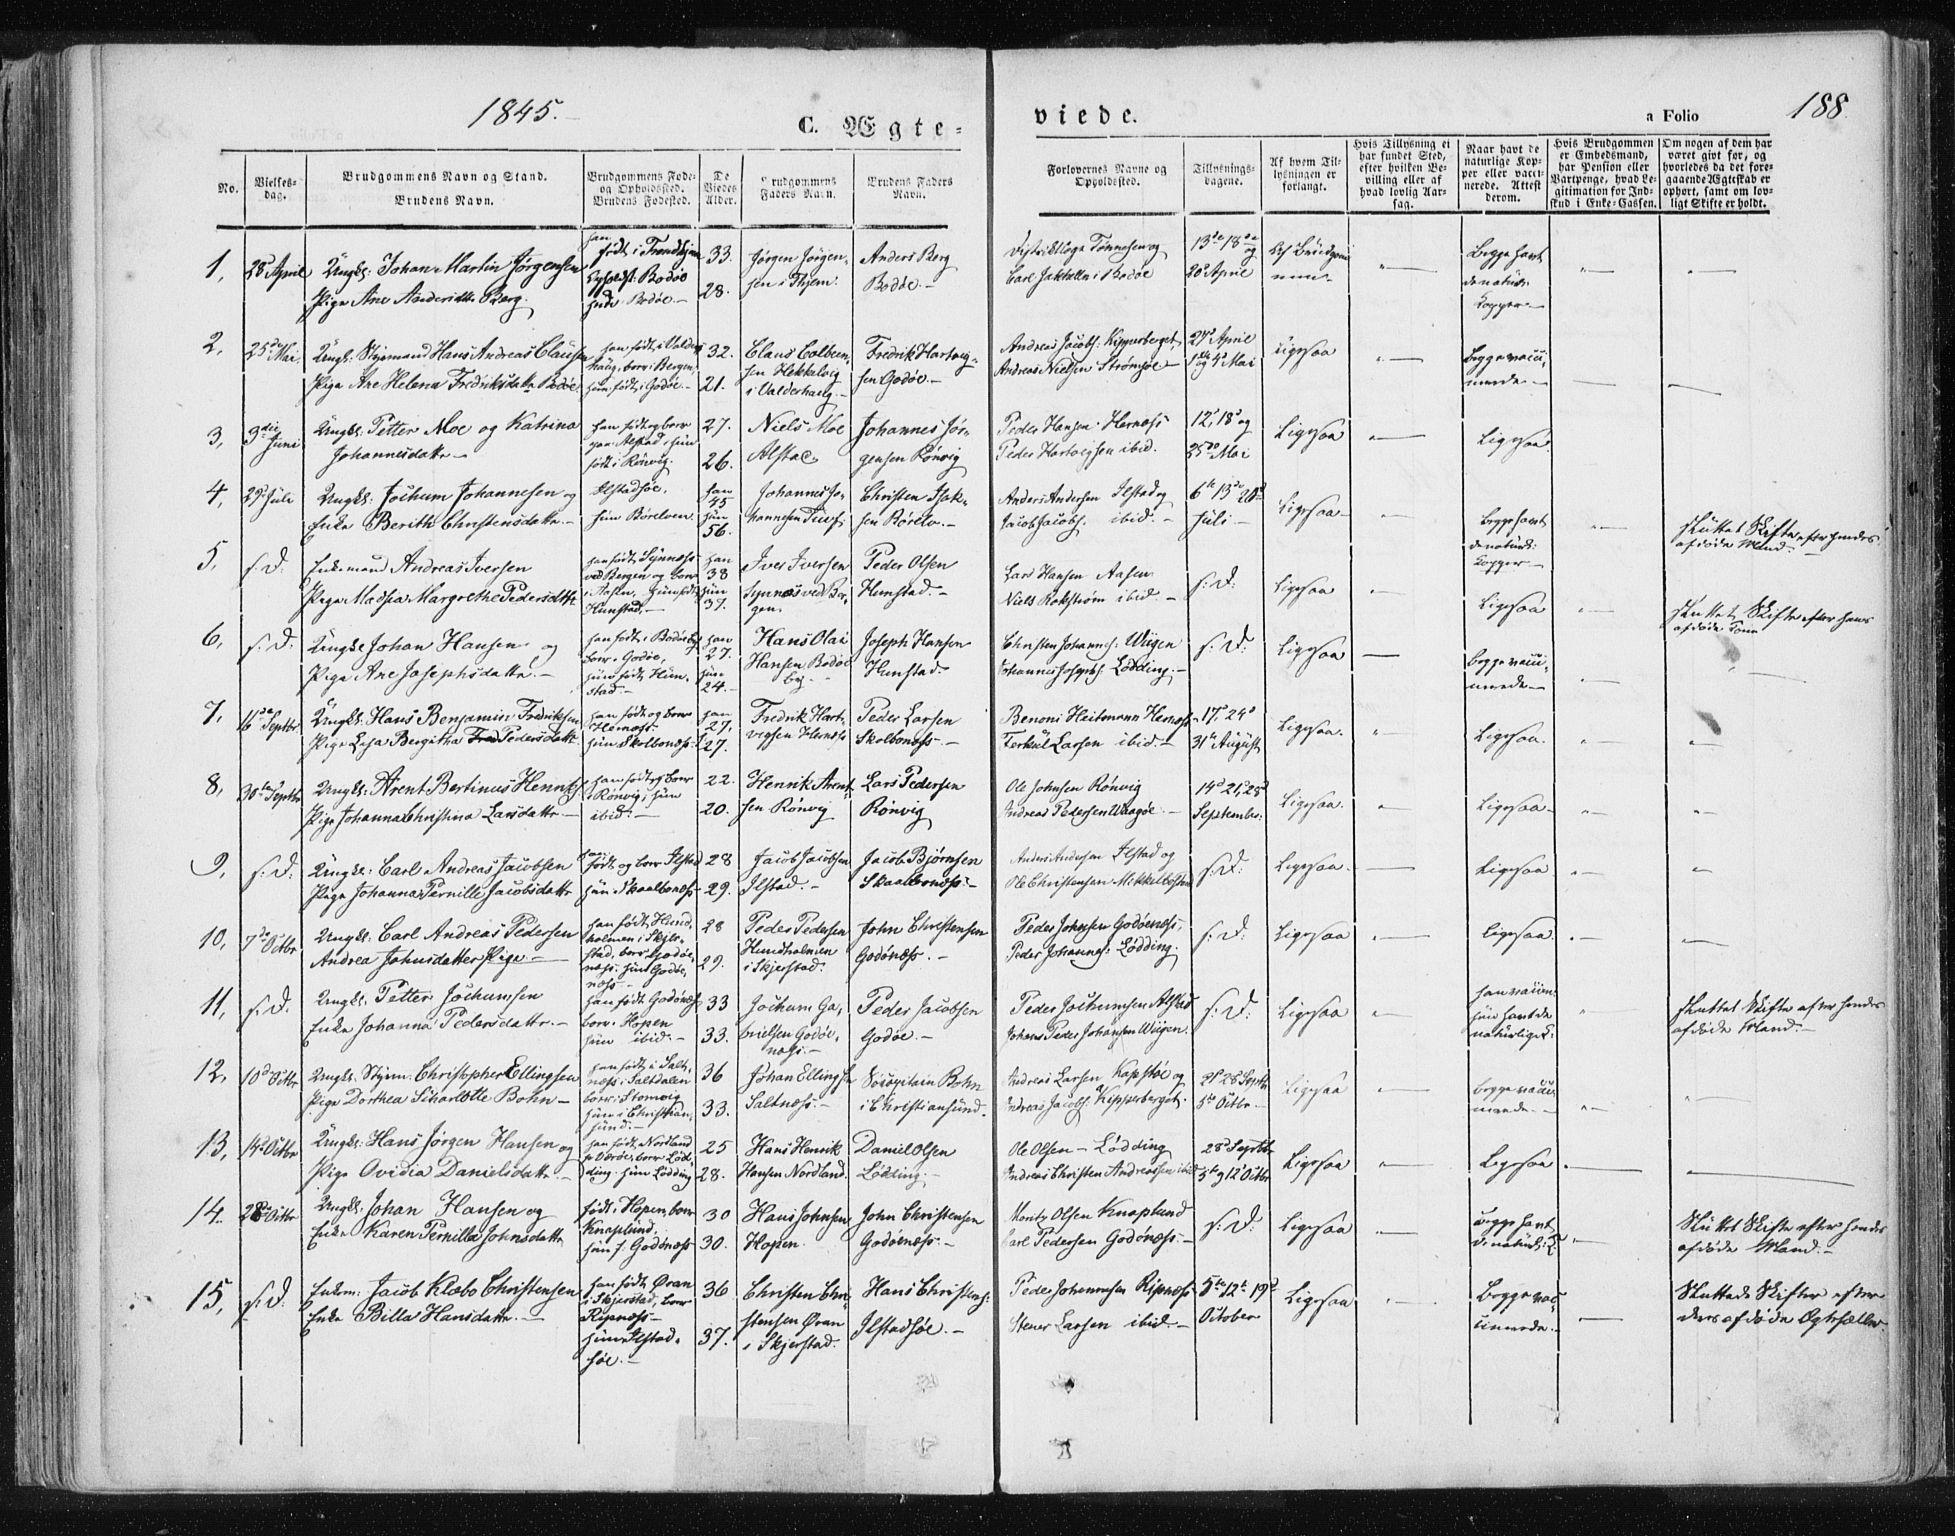 1845.
C. Ægte-
viede.
a Folio 188.
No.
Vielses-
dag.
Brudgommens Navn og Stand.
Brudens Navn.
Brudgommens Føde-
og Opholdssted.
Brudens Fødested.
De
Viedes
Alder.
Brudgommens
Faders Navn.
Brudens Faders
Navn.
Forlovernes Navne og
Opholdssted.
Tillysnings-
dagene.
Af hvem Til-
lysningen er
forlangt.
Hvis Tillysning ei
har fundet Sted,
efter hvilken Be-
villing eller af
hvad lovlig Aar-
sag.
Naar havt de
naturlige Kop-
per eller vacci-
nerede. Attest
derom.
Hvis Brudgommen
er Embedsmand,
har Pension eller
Vartpenge, hvad Le-
gitimation for Ind-
skud i Enke-Cassen.
Om nogen af dem har
været givt før, og
hvorledes da det fore-
gaaende Ægteskab er
ophørt, samt om lov-
ligt Skifte er holdt.
1, 28 April
Ungk: Johan Martin Jørgensen
Pige Ane Berg.
han
født i Trondhjem
Opholdst. Bodøe
hun Bodøe.
33.
28.
Jørgen Jørgen-
sen i Thjem.
Anders Berg
Bodøe.
Tønnesen og
Carl i Bodøe
13de 18de og
20d April
Begge havt
de naturl:
Kopper
2, 25d Mai
Ungk: Styrmand Hans Andreas Clausen
Pige Ane Helena Fredriksdatt Bodøe
han født i Valder
haug, boer i Bergen
hun født i Godøe.
32.
21.
Claus Colbeen-
sen
i Valderhaug.
Fredrik Hartvig-
sen Godøe.
Andreas Jacobs: Kipperberget
Andreas Nielsen Strømsøe
27d April
1ste og 4d Mai
Ligesaa
Begge vacci-
nerede
3, 3die Juni
Ungk: Petter Moe og Katrina
Johannesdattr
han født og boer
paa Alstad, hun
født i Rønvig.
27.
26.
Niels Moe
Alstad
Johannes Jør-
gensen Rønvig
Peder Hansen Hernæss
Peder Hartvigsen ibid.
12, 18d og
25de Mai
Ligesaa
Ligesaa
4, 29d Juli
Ungk: Jochum Johannesen og
Enke Berith Christensdattr.
Ilstadsøe,
hun Børelven.
han
45
hun
56.
Johannes Jo-
hannesen
Christen Isak-
sen Børelv.
Anders Andersen Ilstad og
Jacob Jacobs. ibid.
6te 13de 20d
Juli
Ligesaa
Begge havt
de naturl:
Kopper
sluttet Skifte efter hendes
afdøde Mand.
5, s: D:
Enkemand Andreas Iversen
Pige Madsea Margrethe Pedersdattr
han født i Synnæss
ved Bergen og boer
i Aasen, hun født
Hunstad.
han
38
hun
37.
Iver Iversen
Synnæs ved Ber-
gen.
Peder Olsen
Hunstad.
Lars Hansen Aasen
Niels Rokstrøm ibid.
s: D:
Ligesaa
Ligesaa
sluttet Skifte efter hans
afdøde Kone
6, s: D:
Ungk: Johan Hansen og
Pige Ane Josephsdattr.
han født i Bodøe
boer Godøe,
hun født Hun-
stad.
han
27.
hun
24.
Hans Olai
Hansen Bodøe
Joseph Hansen
Hunstad.
Christen Johannes: Wiigen
Johannes Josephs. Lødding.
s: D:
Ligesaa
Begge vacci-
nerede
7, 16de Septbr
Ungk: Hans Benjamin Fredriksen
Pige Lesa Bergitha Pedersdatt
han født og boer
Hernæss.
hun Skolbonæss:
han
27,
27.
Fredrik Hart-
vigsen Hernæss
Peder Larsen
Skolbonæss.
Benoni Heitmann Hernæss
Terkel Larsen ibid.
17d 24d
31te August
Ligesaa.
Ligesaa.
8, 30te Septbr
Ungk: Arent Bertinus Henriks
Pige Johanna Christina Larsdattr.
han født og boer
i Rønvig, hun
ibid:
22.
20.
Henrik Arent-
sen Rønvig
Lars Pedersen
Rønvig
Ole Johnsen Rønvig
Andreas Pedersen Waagøe.
14d 21, 28d
September
Ligesaa
Ligesaa
9, s: D:
Ungk: Carl Andreas Jacobsen
Pige Johanna Pernille Jacobsdattr
født og boer Ilstad
hun Skaalbonæss
28
29.
Jacob Jacobsen
Ilstad.
Jacob Bjørnsen
Skaalbonæss:
Anders Andersen Ilstad og
Ole Christensen Mikkelbosten
s: D:
Ligesaa.
Ligesaa
10, 7de Octbr
Ungk: Carl Andreas Pedersen
Andrea Johnsdatter Pige
han født Hund-
holmen i Skjer-
stad, boer Godøe-
næss. hun Godøe-
næss
28
29.
Peder Pedersen
Hundholmen
i Skjerstad.
John Christensen
Godønæss.
Peder Johnsen Godøenæss,
Peder Johannes: Lødding.
s: D:
Ligesaa
Ligesaa
11, s: D:
Ungk: Petter Jochumsen
Enke Johanna Pedersdattr.
han født Godønæss
boer Hopen
hun ibid.
33
33.
Jochum Ga-
brielsen Godøe-
næss.
Peder Jacobsen
Godøe.
Peder Jochumsen Alstad
Johans Peder Johansen Wiigen.
s: D:
Ligesaa
han vaccin:
hun havt de
naturlige K:
sluttet Skifte efter hendes
afdøde Mand.
12, 10d Octbr
Ungk: Styrm: Christopher Ellingsen
Pige Dorthea Scharlotte Bohn
han født i Salt-
næss i Saltdalen
boer Stomvig
hun i Christian-
sund.
36
33.
Johan Ellingsen
Saltnæss.
Bohn
i Christiansund.
Andreas Larsen Kopstøe og
Andreas Jacobs. Kipperberget.
21 28 Septbr
5te Octbr
Ligesaa
Begge vacci-
nerede
13, 14d Octbr
Ungk: Hans Jørgen Hansen og
Pige Ovidia Danielsdattr.
han født Nordland
boer Lød-
ding. hun Lødding
25
28.
Hans Henrik
Hansen Nordland.
Daniel Olsen
Lødding
Ole Olsen Lødding
Andreas Christen Andreassen ibid
28d Septbr
5te og 12d Octbr
Ligesaa
Ligesaa
14. 28 Octbr
Ungk: Johan Hansen og
Enke Karen Pernilla Johnsdattr
født i Hopen, boer
Knaplund
hun f. Godønæss
30
30.
Hans Johnsen
Hopen.
John Christensen
Godøenæss.
Moritz Olsen Knaplund
Carl Pedersen Godønæss.
s: D:
Ligesaa
Begge havt
de naturl: K:
Sluttet Skifte efter hendes
afdøde Mand.
15, s: D:
Enkem: Jacob Klæbo Christensen
Enke Billa Hansdattr.
han født Øran
i Skjerstad, boer
Ripnæss
hun Ilstad-
søe.
36
37.
Christen Chri-
stensen Øran
i Skjerstad.
Hans Christens:
Ilstadsøe.
Peder Johannesen Ripnæss
Stener Larsen ibid.
5te 12te 19d
October
Ligesaa
Begge vac-
cinerede.
Sluttede Skifter efter
deres afdøde Ægtefæller.